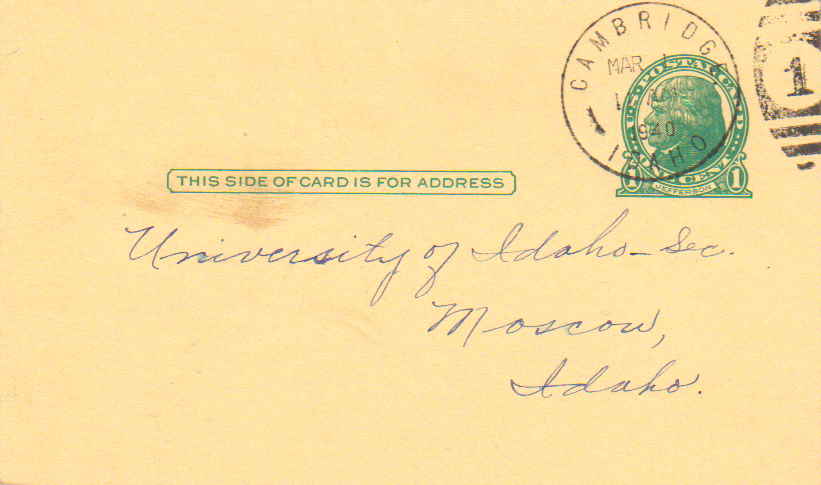 CAMBRIDGE
MAR 1
1940
IDAHO
1
U.S. POSTAL CARD
1 CENT 1
JEFFERSON
THIS SIDE OF CARD IS FOR ADDRESS
University of Idaho - Sec.
Moscow,
Idaho.